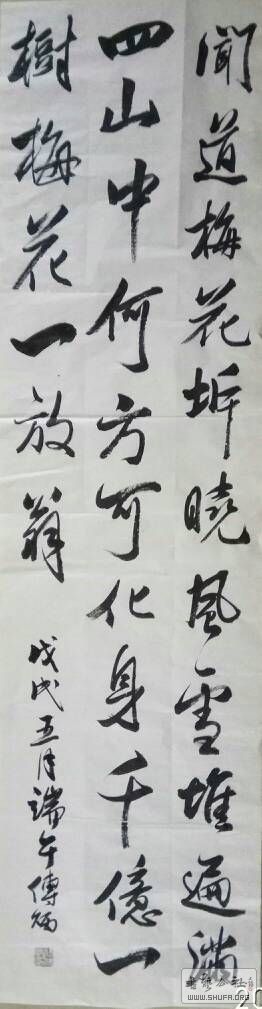 聞道梅花坼曉風雪堆遍滿
四山中何方可化身千億一
樹梅花一放翁
戊戌五月端午
WWW.SHUFA.ORG